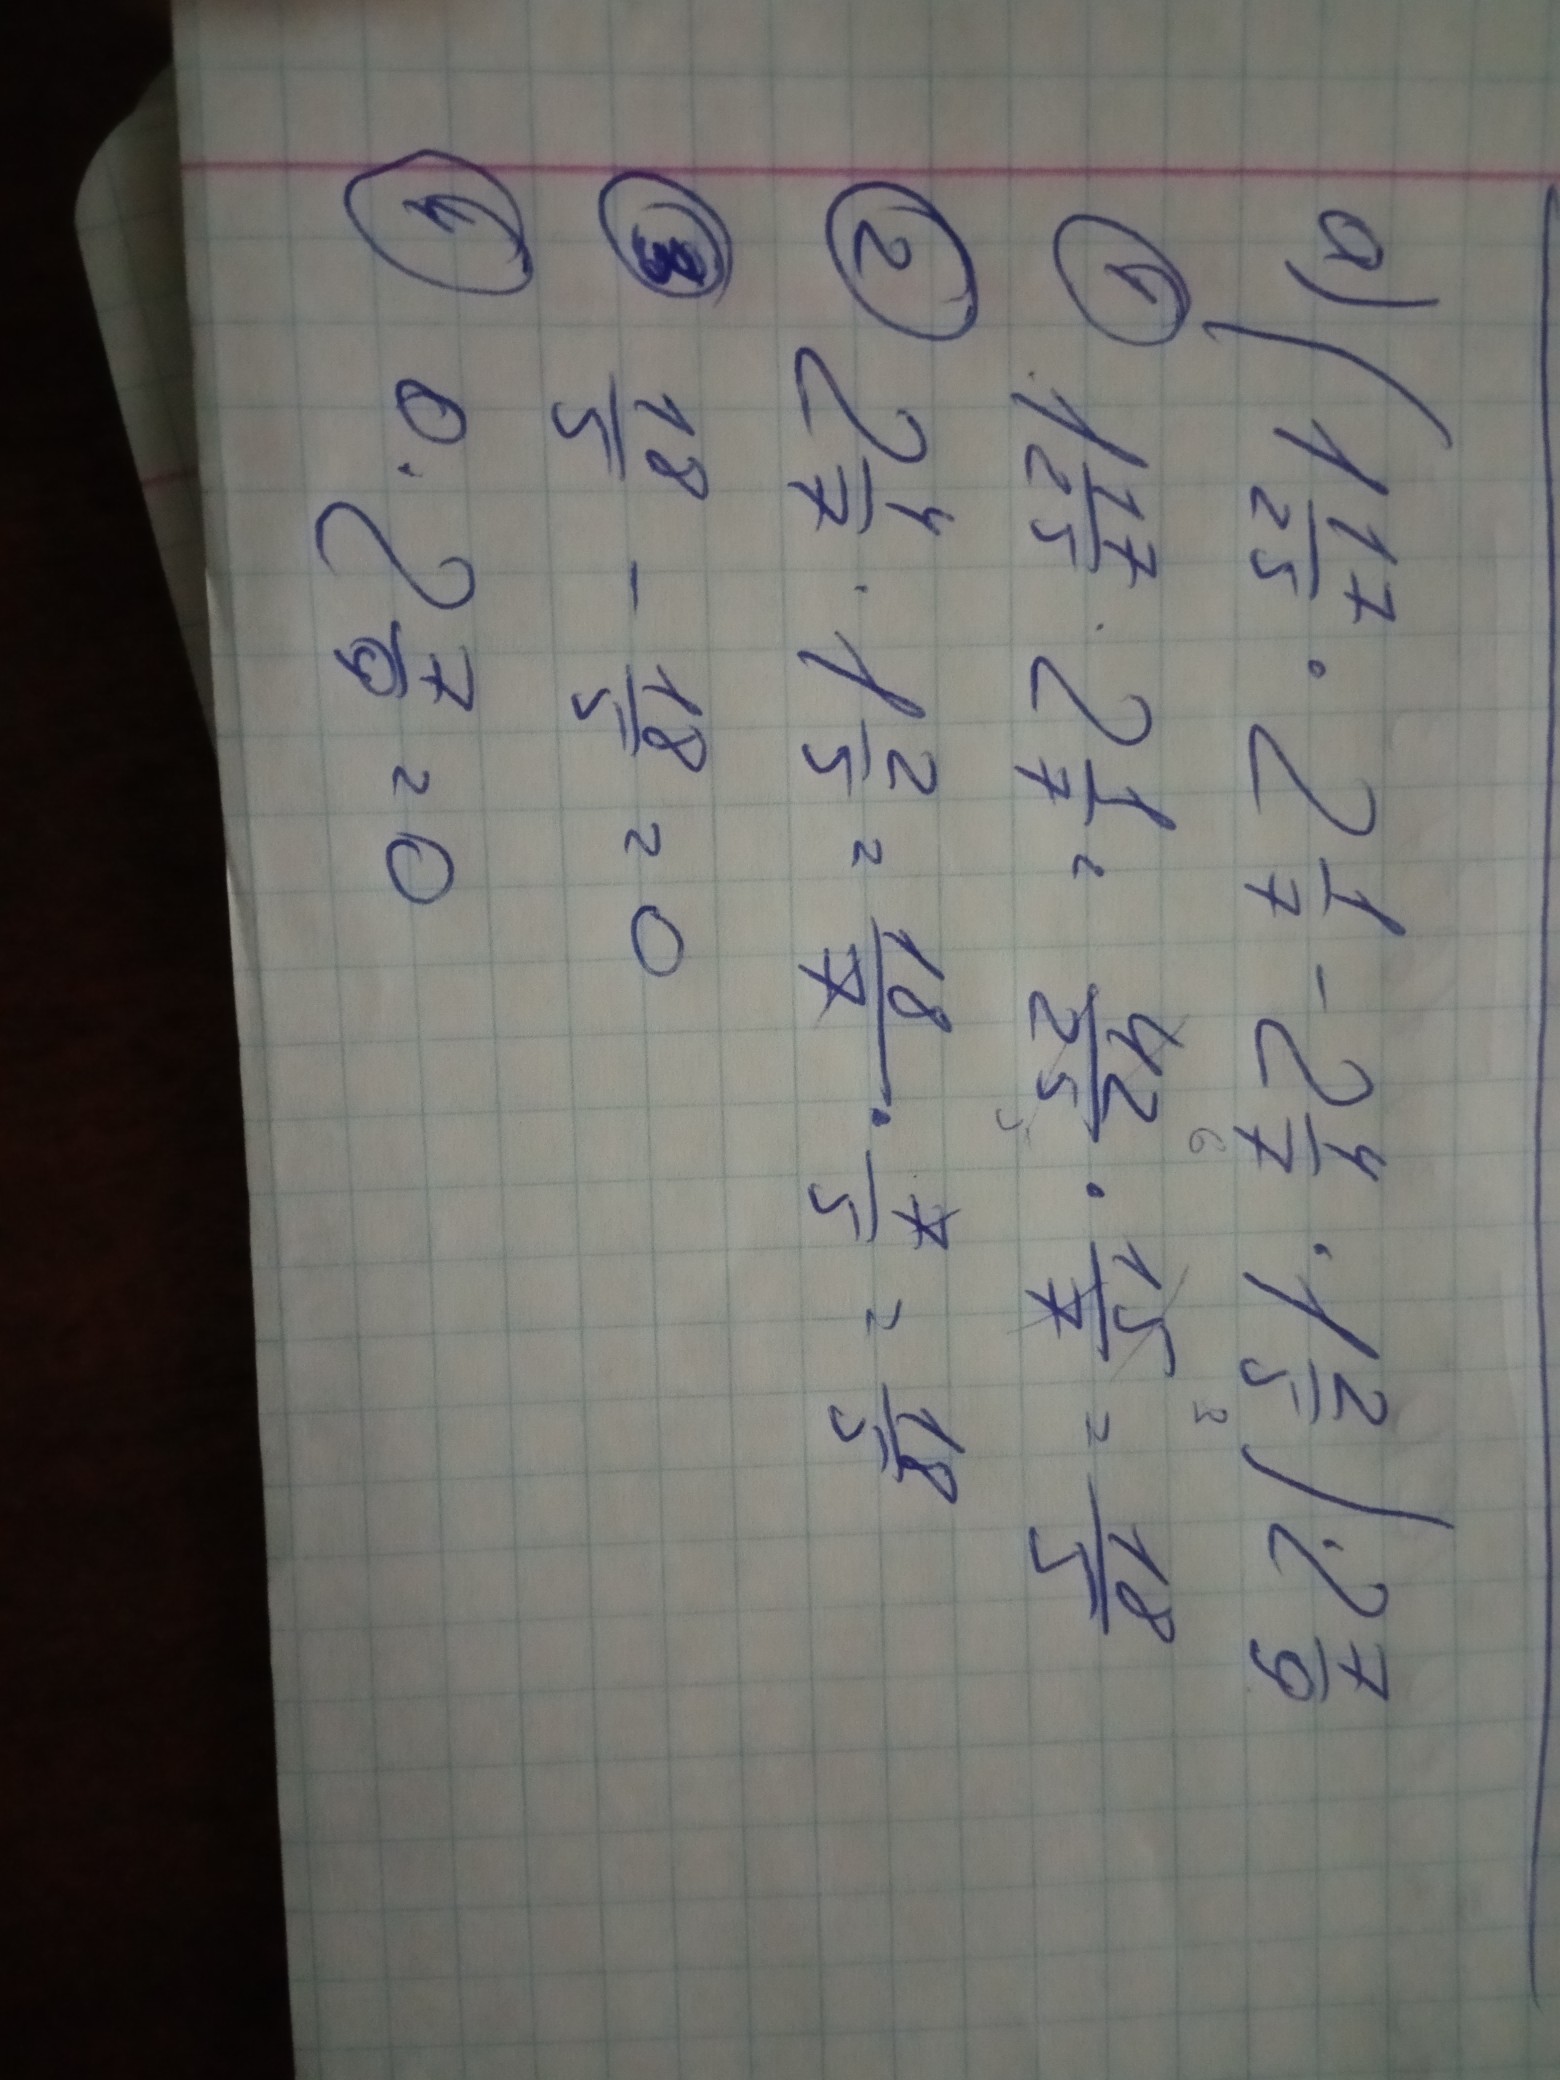 а) (1 17/25 · 2 1/7 - 2 4/7 · 1 2/5) · 2 7/9
1 1 17/25 · 2 1/7 = 42/25 · 15/7 = 18/5
6 3 5
2 2 4/7 · 1 2/5 = 18/7 · 7/5 = 18/5
3 18/5 - 18/5 = 0
4 0 · 2 7/9 = 0